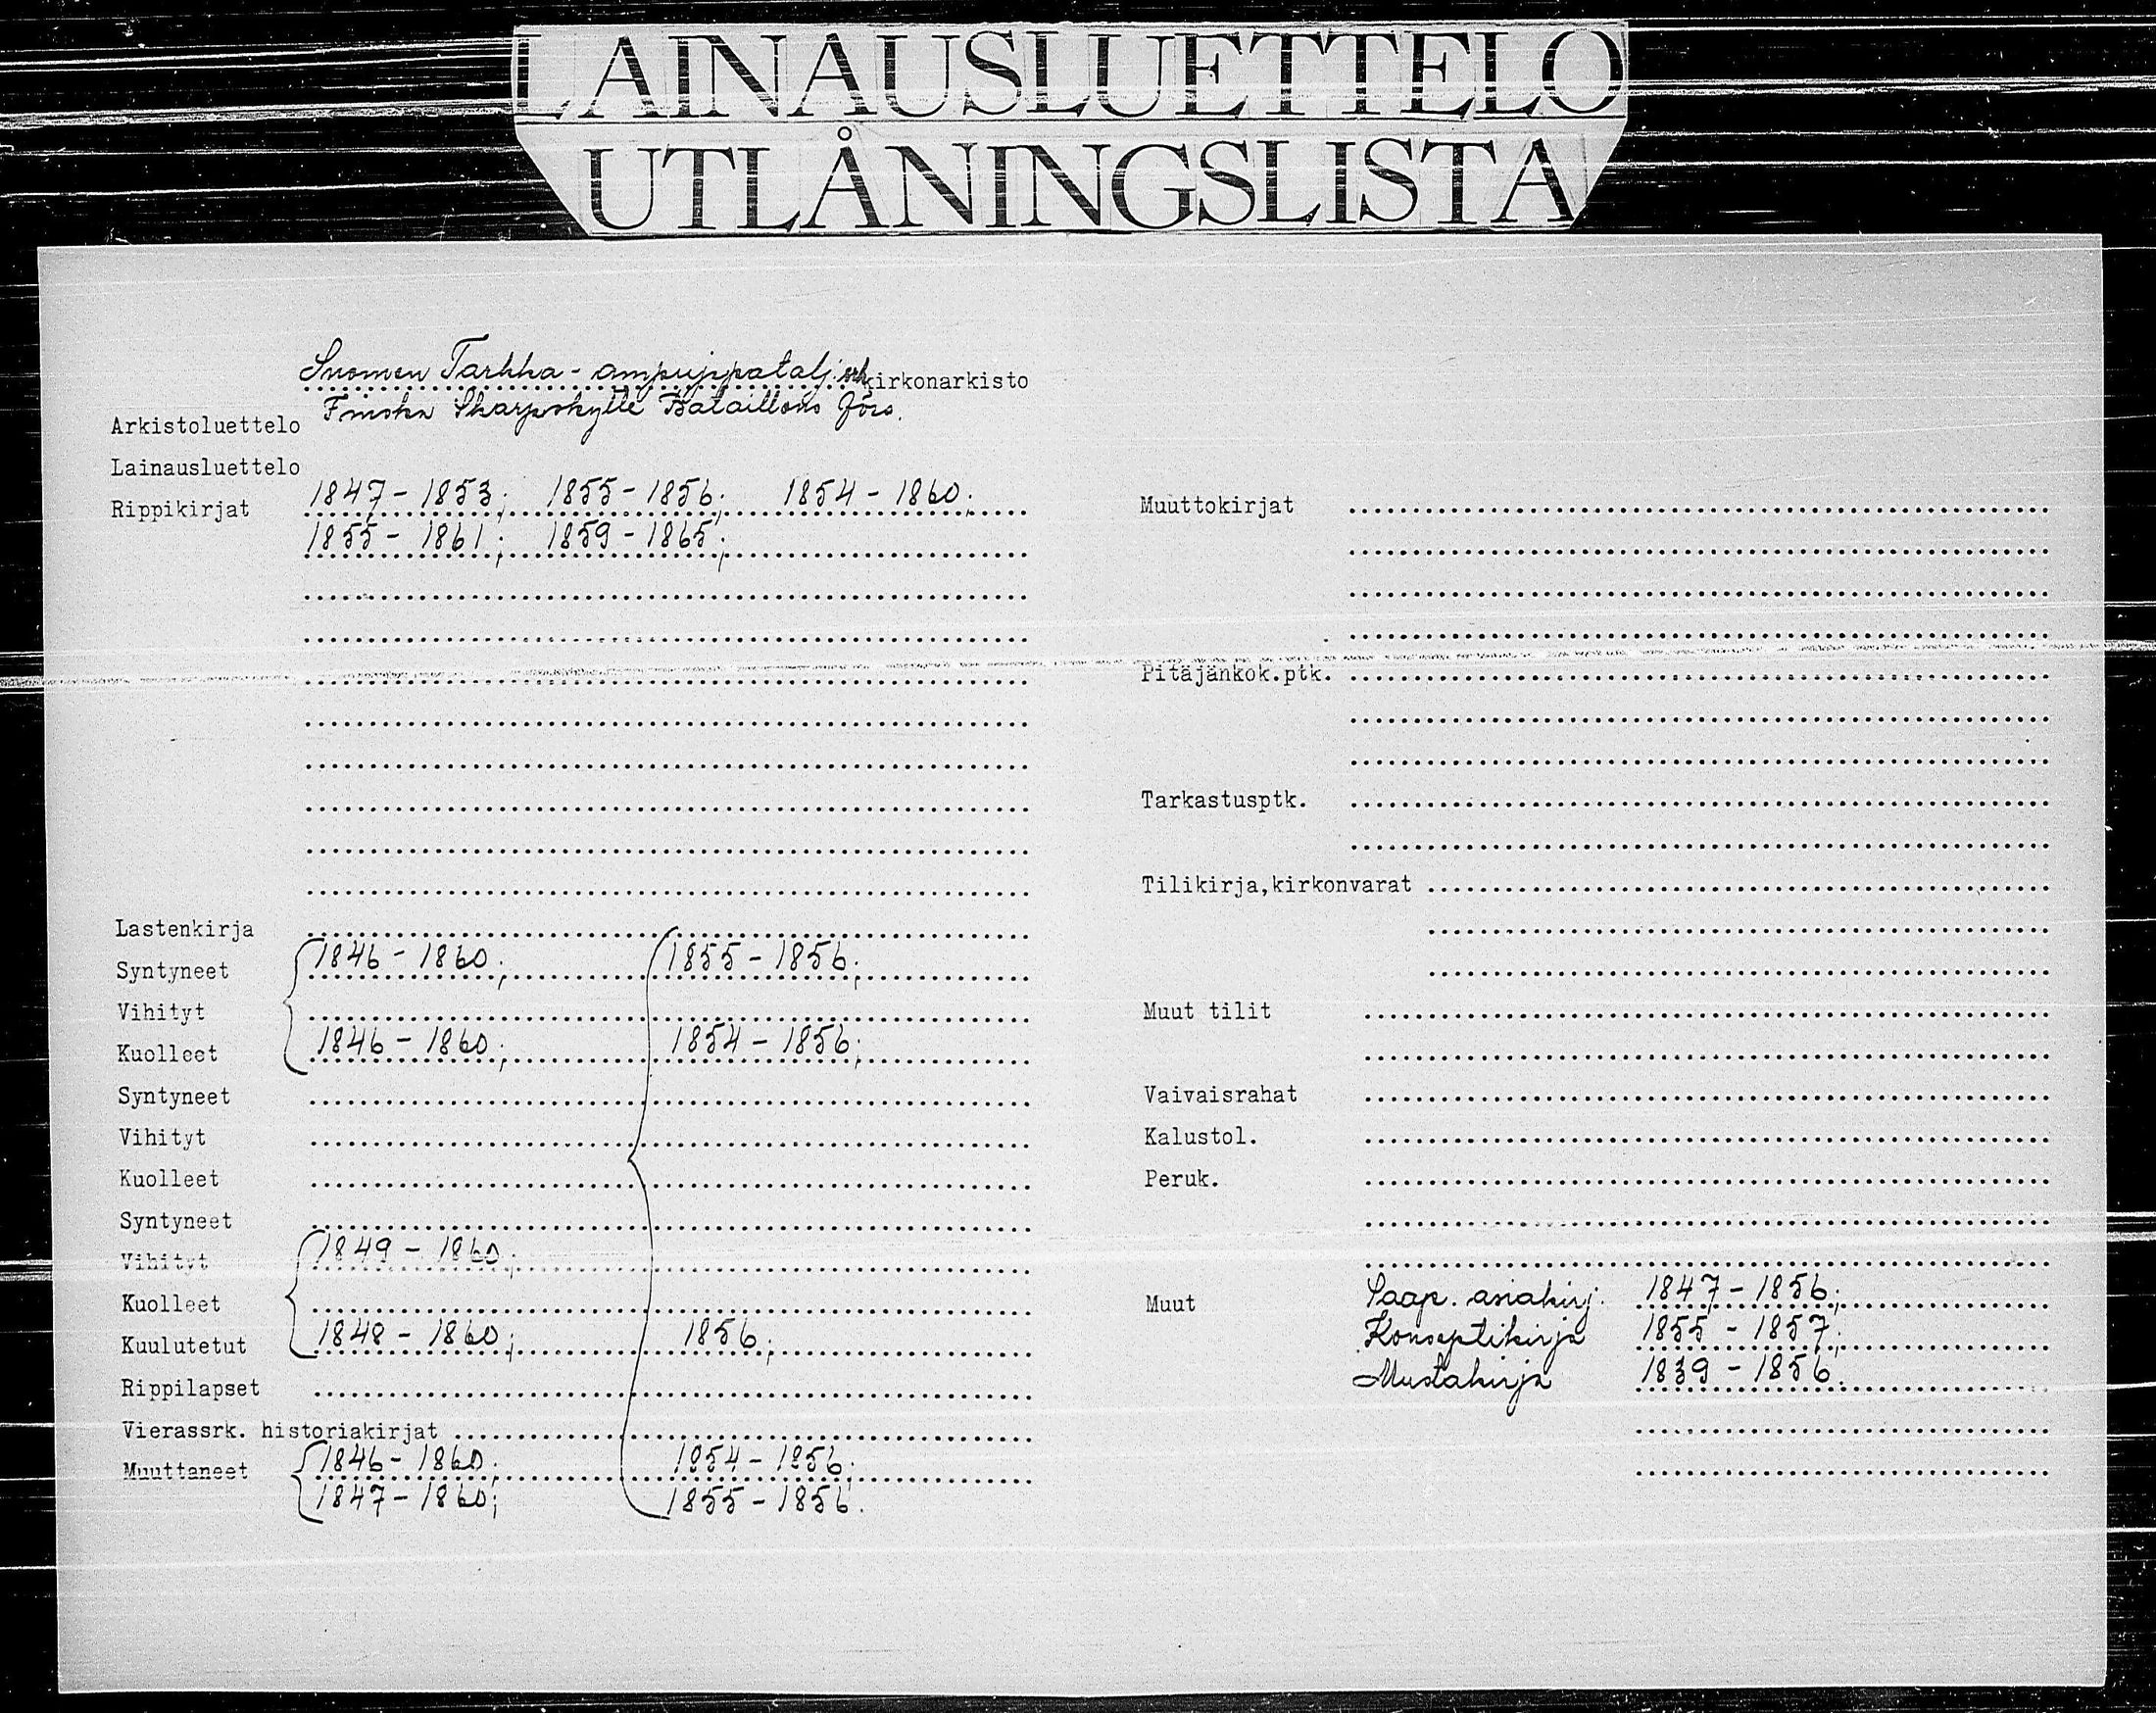 LAINAUSLUETTELO
UTLÅNINGSLISTA
Suomen Tarkka-ampujapatalj. srk kirkonarkisto
Arkistoluettelo Finska Skarpskytte Bataillons förs.
Lainausluettelo
Rippikirjat 1847-1853; 1855-1856; 1854-1860;
1855-1861; 1859-1865;
Lastenkirja
Syntyneet 1846-1860; 1855-1856;
Vihityt
Kuolleet 1846-1860; 1854-1856;
Syntyneet
Vihityt
Kuolleet
Syntyneet
Vihityt 1849-1860;
Kuolleet
Kuulutetut 1848-1860; 1856;
Rippilapset
Vierassrk. historiakirjat
Muuttaneet 1846-1860; 1854-1856;
1847-1860; 1855-1856.
Muuttokirjat
Pitäjänkok.ptk.
Tarkastusptk.
Tilikirja,kirkonvarat
Muut tilit
Vaivaisrahat
Kalustol.
Peruk.
Muut Saap. asiakirj. 1847-1856;
Konseptikirja 1855-1857;
Mustakirja 1839-1856.